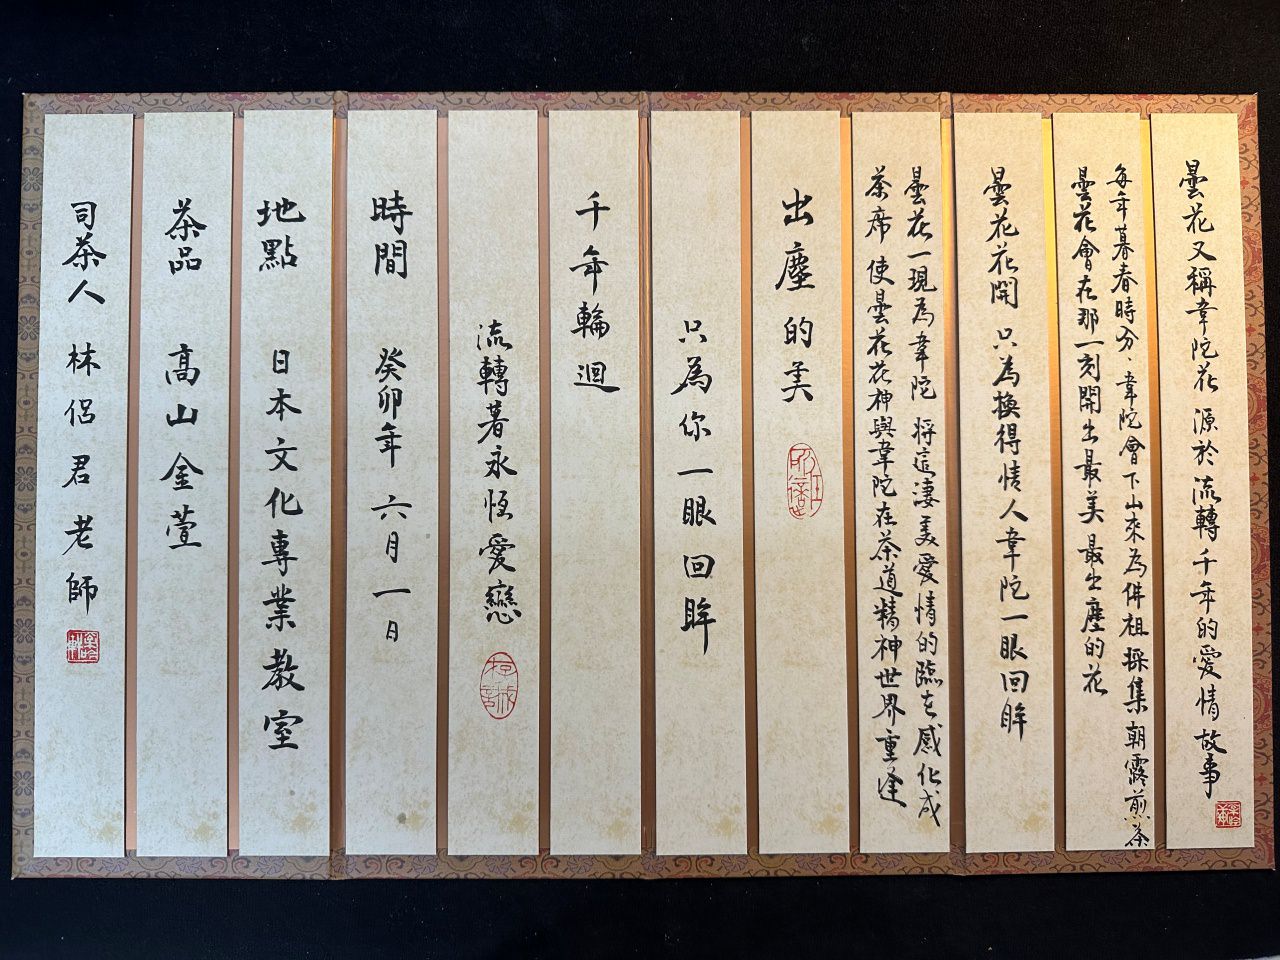 曇花又稱韋陀花 源於流轉千年的愛情故事
每年暮春時分、韋陀會下山來為佛祖採集朝露煎茶
曇花會在那一刻開出最美最出塵的花
曇花花開 只為換得情人韋陀一眼回眸
曇花一現為韋陀 將這淒美愛情的臨在感化成
茶席 使曇花花神與韋陀在茶道精神世界重逢
出塵的美
只為你一眼回眸
千年輪迴
流轉著永恆愛戀
時間 癸卯年 六月一日
地點 日本文化專業教室
茶品 高山金萱
司茶人 林侶君老師